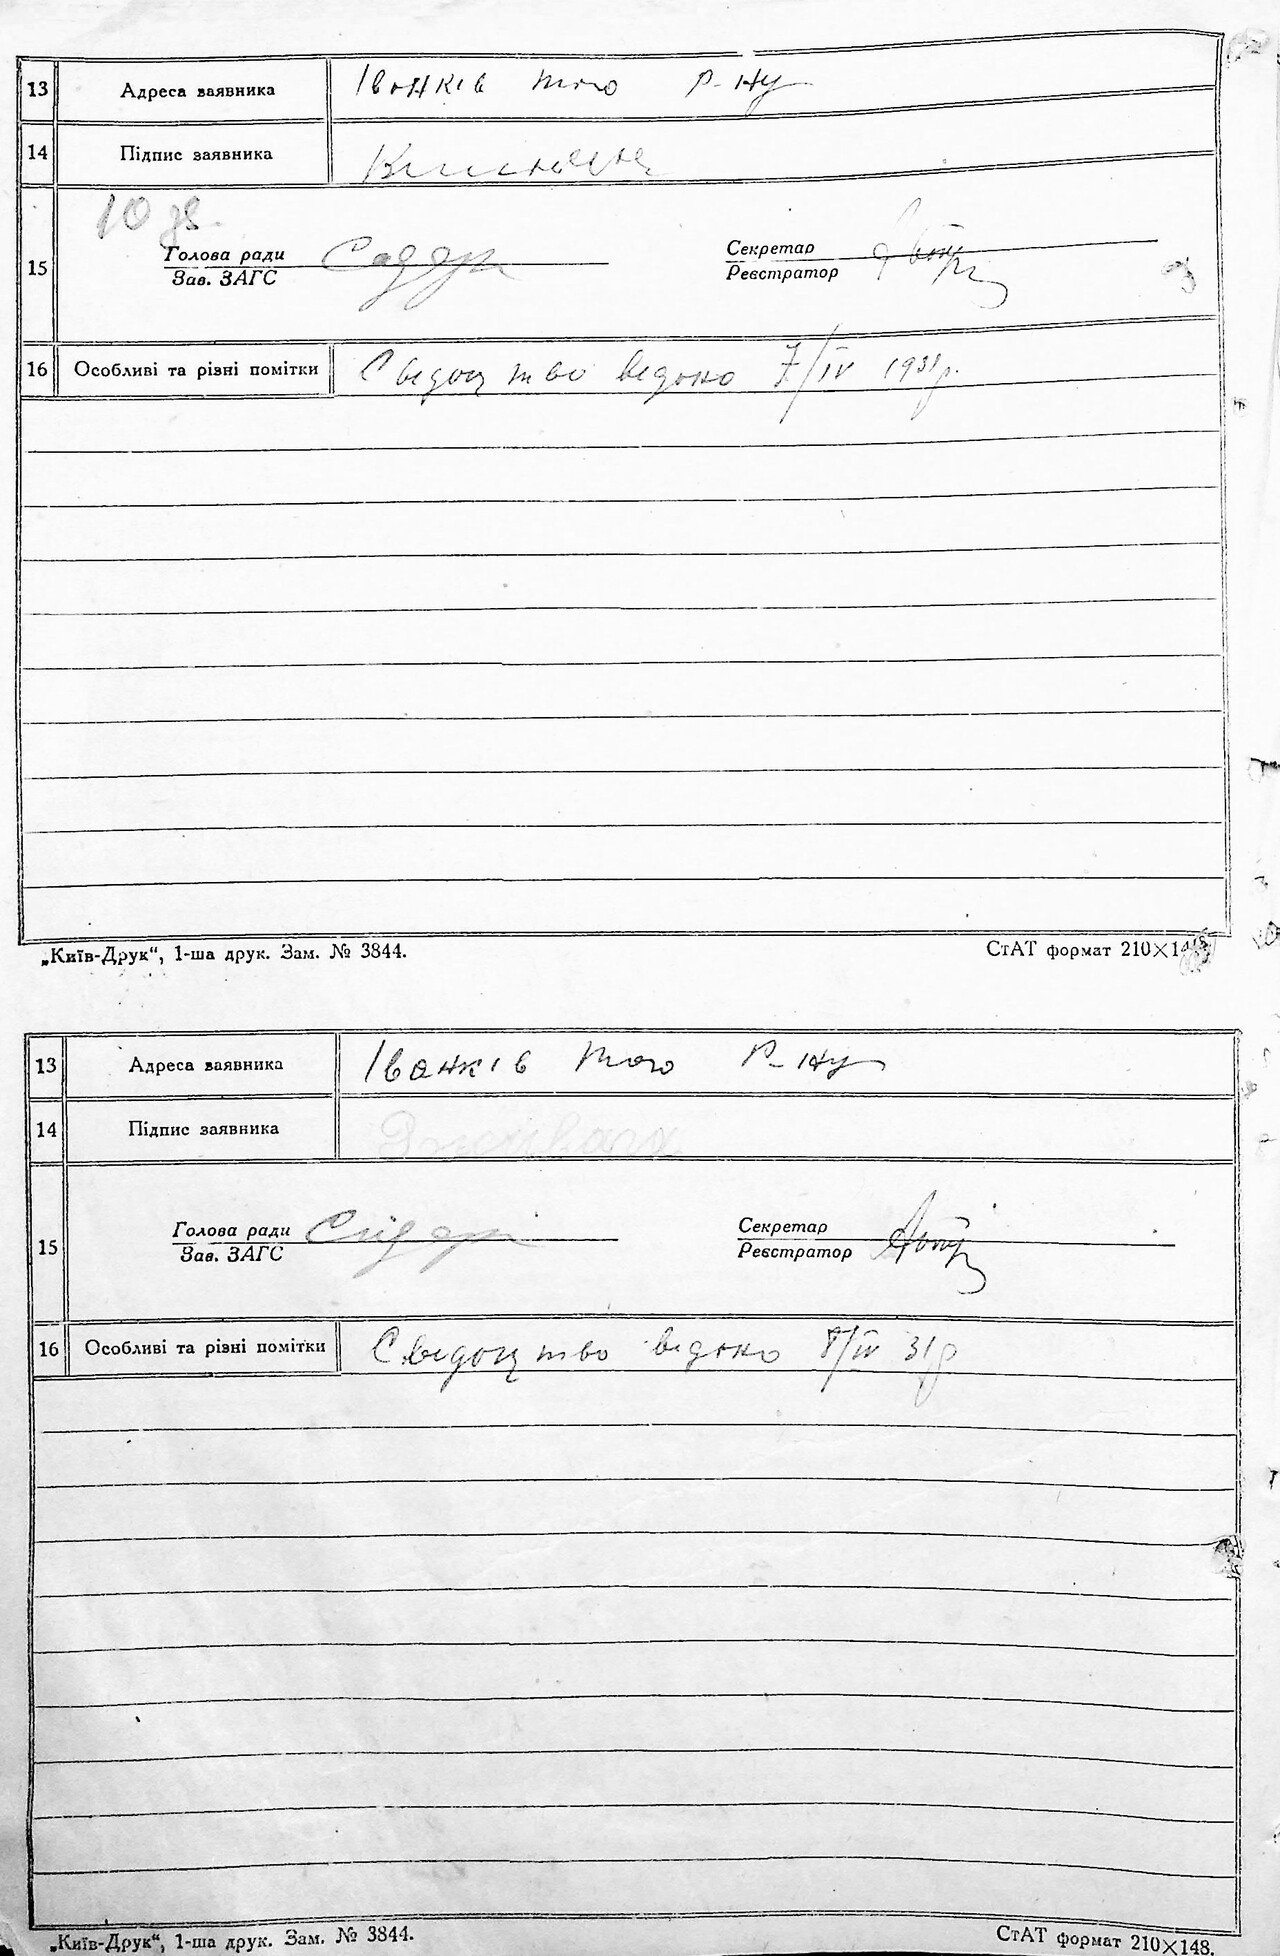 13 Адреса заявника Іванків того р-ну
14 Підпис заявника
15
Голова ради Секретар
Зав. ЗАГС Реєстратор
16 Особливі та різні помітки Сведоцтво ведоно 7/IV 1931р.
„Київ-Друк“, 1-ша друк. Зам. № 3844. СтАТ формат 210×148
13 Адреса заявника Іванків того р-ну
14 Підпис заявника
15
Голова ради Секретар
Зав. ЗАГС Реєстратор
16 Особливі та різні помітки Сведоцтво ведоно 8/IV 31р
„Київ-Друк“, 1-ша друк. Зам. № 3844. СтАТ формат 210×148.